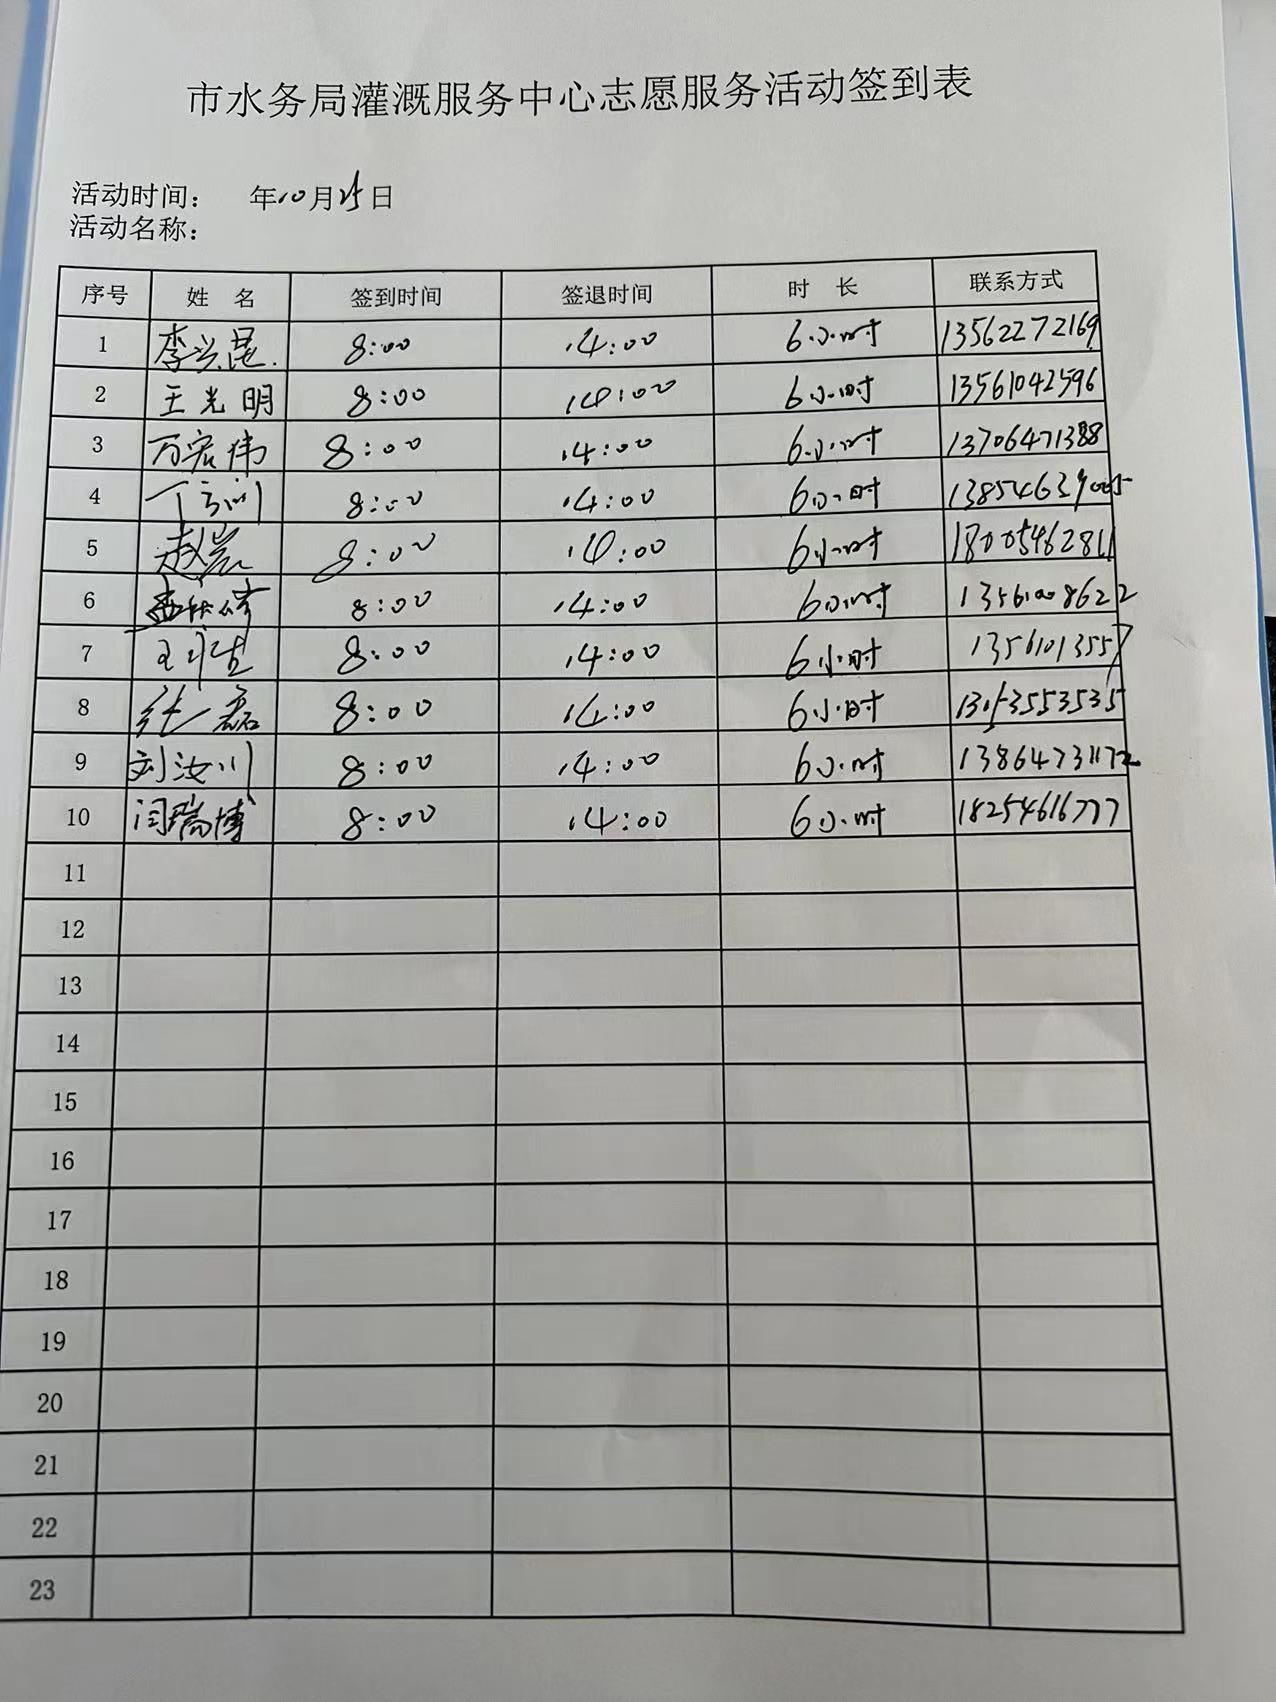 市水务局灌溉服务中心志愿服务活动签到表
活动时间： 年10月25日
活动名称：
序号 姓 名 签到时间 签退时间 时 长 联系方式
1 李兴昆 8:00 14:00 6小时 13562272169
2 王光明 8:00 14:00 6小时 13561042596
3 万宏伟 8:00 14:00 6小时 13706471388
4 丁 8:00 14:00 6小时 13854639005
5 赵岩 8:00 14:00 6小时 18005462811
6 8:00 14:00 6小时 13561008622
7 王永生 8:00 14:00 6小时 13561013557
8 张磊 8:00 14:00 6小时 13053553535
9 刘汝川 8:00 14:00 6小时 13864731172
10 闫瑞博 8:00 14:00 6小时 18254616777
11
12
13
14
15
16
17
18
19
20
21
22
23